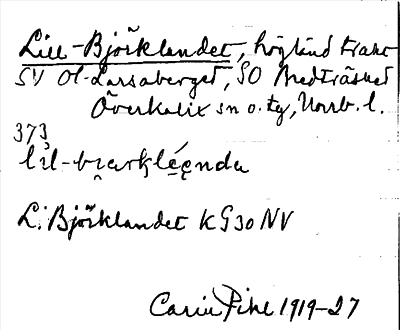 Lill-Björklandet, högländ trakt
SV Ol-Larsaberget, SO Medträsket
Överkalix sn o. tg, Norrb. l.
373
L. Björklandet KG30NV
Carin Pihl 1919-27